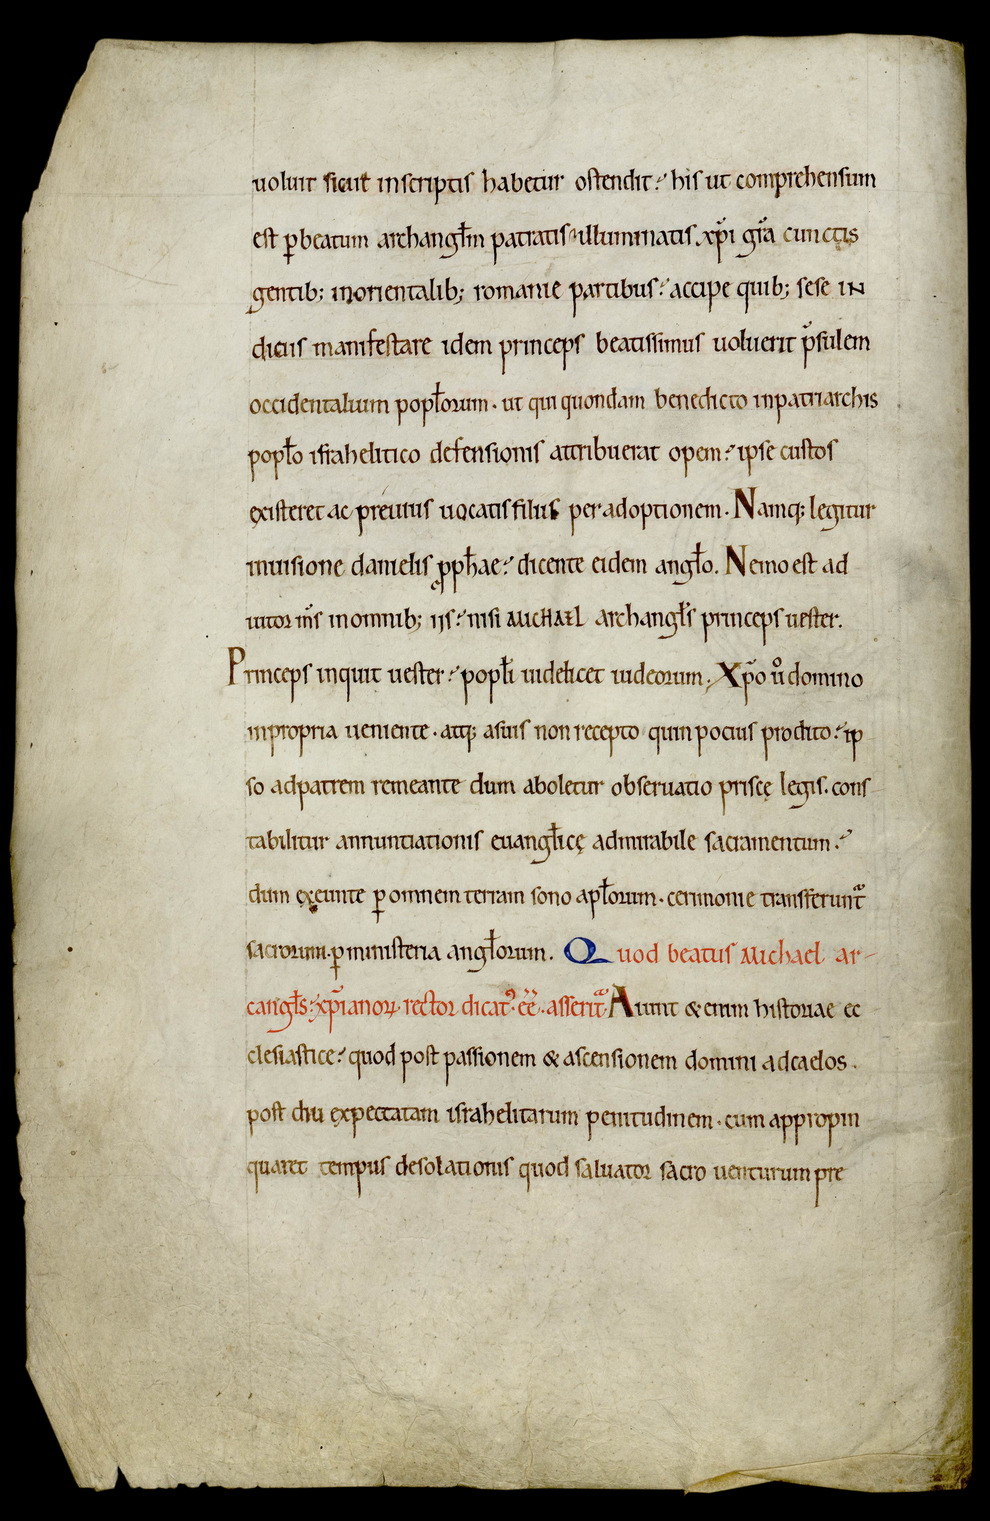 uoluit sicut inscriptis habetur ostendit: his ut comprehensum
est ꝑbeatum archangl̄m patratis illuminatis xp̄i gr̄a cunctis
gentib; inorientalib; romanie partibus: accipe quib; sese in
diciis manifestare idem princeps beatissimus uoluerit p̄sulem
occidentalium popl̄orum. ut qui quondam benedicto inpatriarchis
popl̄o israhelitico defensionis attribuerat opem: ipse custos
existeret ac preuius uocatis filiis per adoptionem. Namq; legitur
inuisione danielis ꝓph̄ae: dicente eidem angl̄o. Nemo est ad
iutor m̄s inomnib; iis: nisi MICHAEL archangl̄s princeps uester.
Princeps inquit uester: popl̄i uidelicet iudeorum. Xp̄o ů domino
inpropria ueniente. atq; asuis non recepto quin pocius prodito: ip
so adpatrem remeante dum aboletur obseruatio priscę legis. cons
tabilitur annuntiationis euangl̄icę admirabile sacramentum:
dum exeunte ꝑ omnem terram sono apl̄orum. cerimonie transferunt᷑
sacrorum. ꝑministeria angl̄orum. Quod beatus Michael ar-
cangl̄s: xp̄ianoꝝ rector dicat᷑ ee̅. asserit᷑. Aiunt & enim historiae ec
clesiastice: quod post passionem & ascensionem domini adcaelos.
post diu expectatam israhelitarum penitudinem. cum appropin
quaret tempus desolationis quod saluator sacro uenturum pre